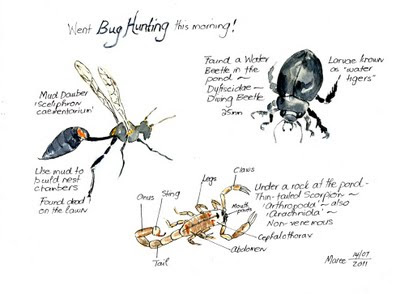 Went Bug Hunting this morning!
Mud Dauber
'Sceliphron
caementarium'
Use mud to
build nest
chambers
Found dead
on the lawn
Found a Water
Beetle in the
pond ~
'Dytiscidae' ~
Diving Beetle
25mm
Larvae known
as "water
tigers"
Onus
Sting
Legs
Claws
Mouth
parts
Cephalothorax
Abdomen
Tail
Under a rock at the pond -
Thin-tailed Scorpion ~
'Arthropoda' ~ also
'Arachnida' ~
Non-venemous
Maree 14/07
2011